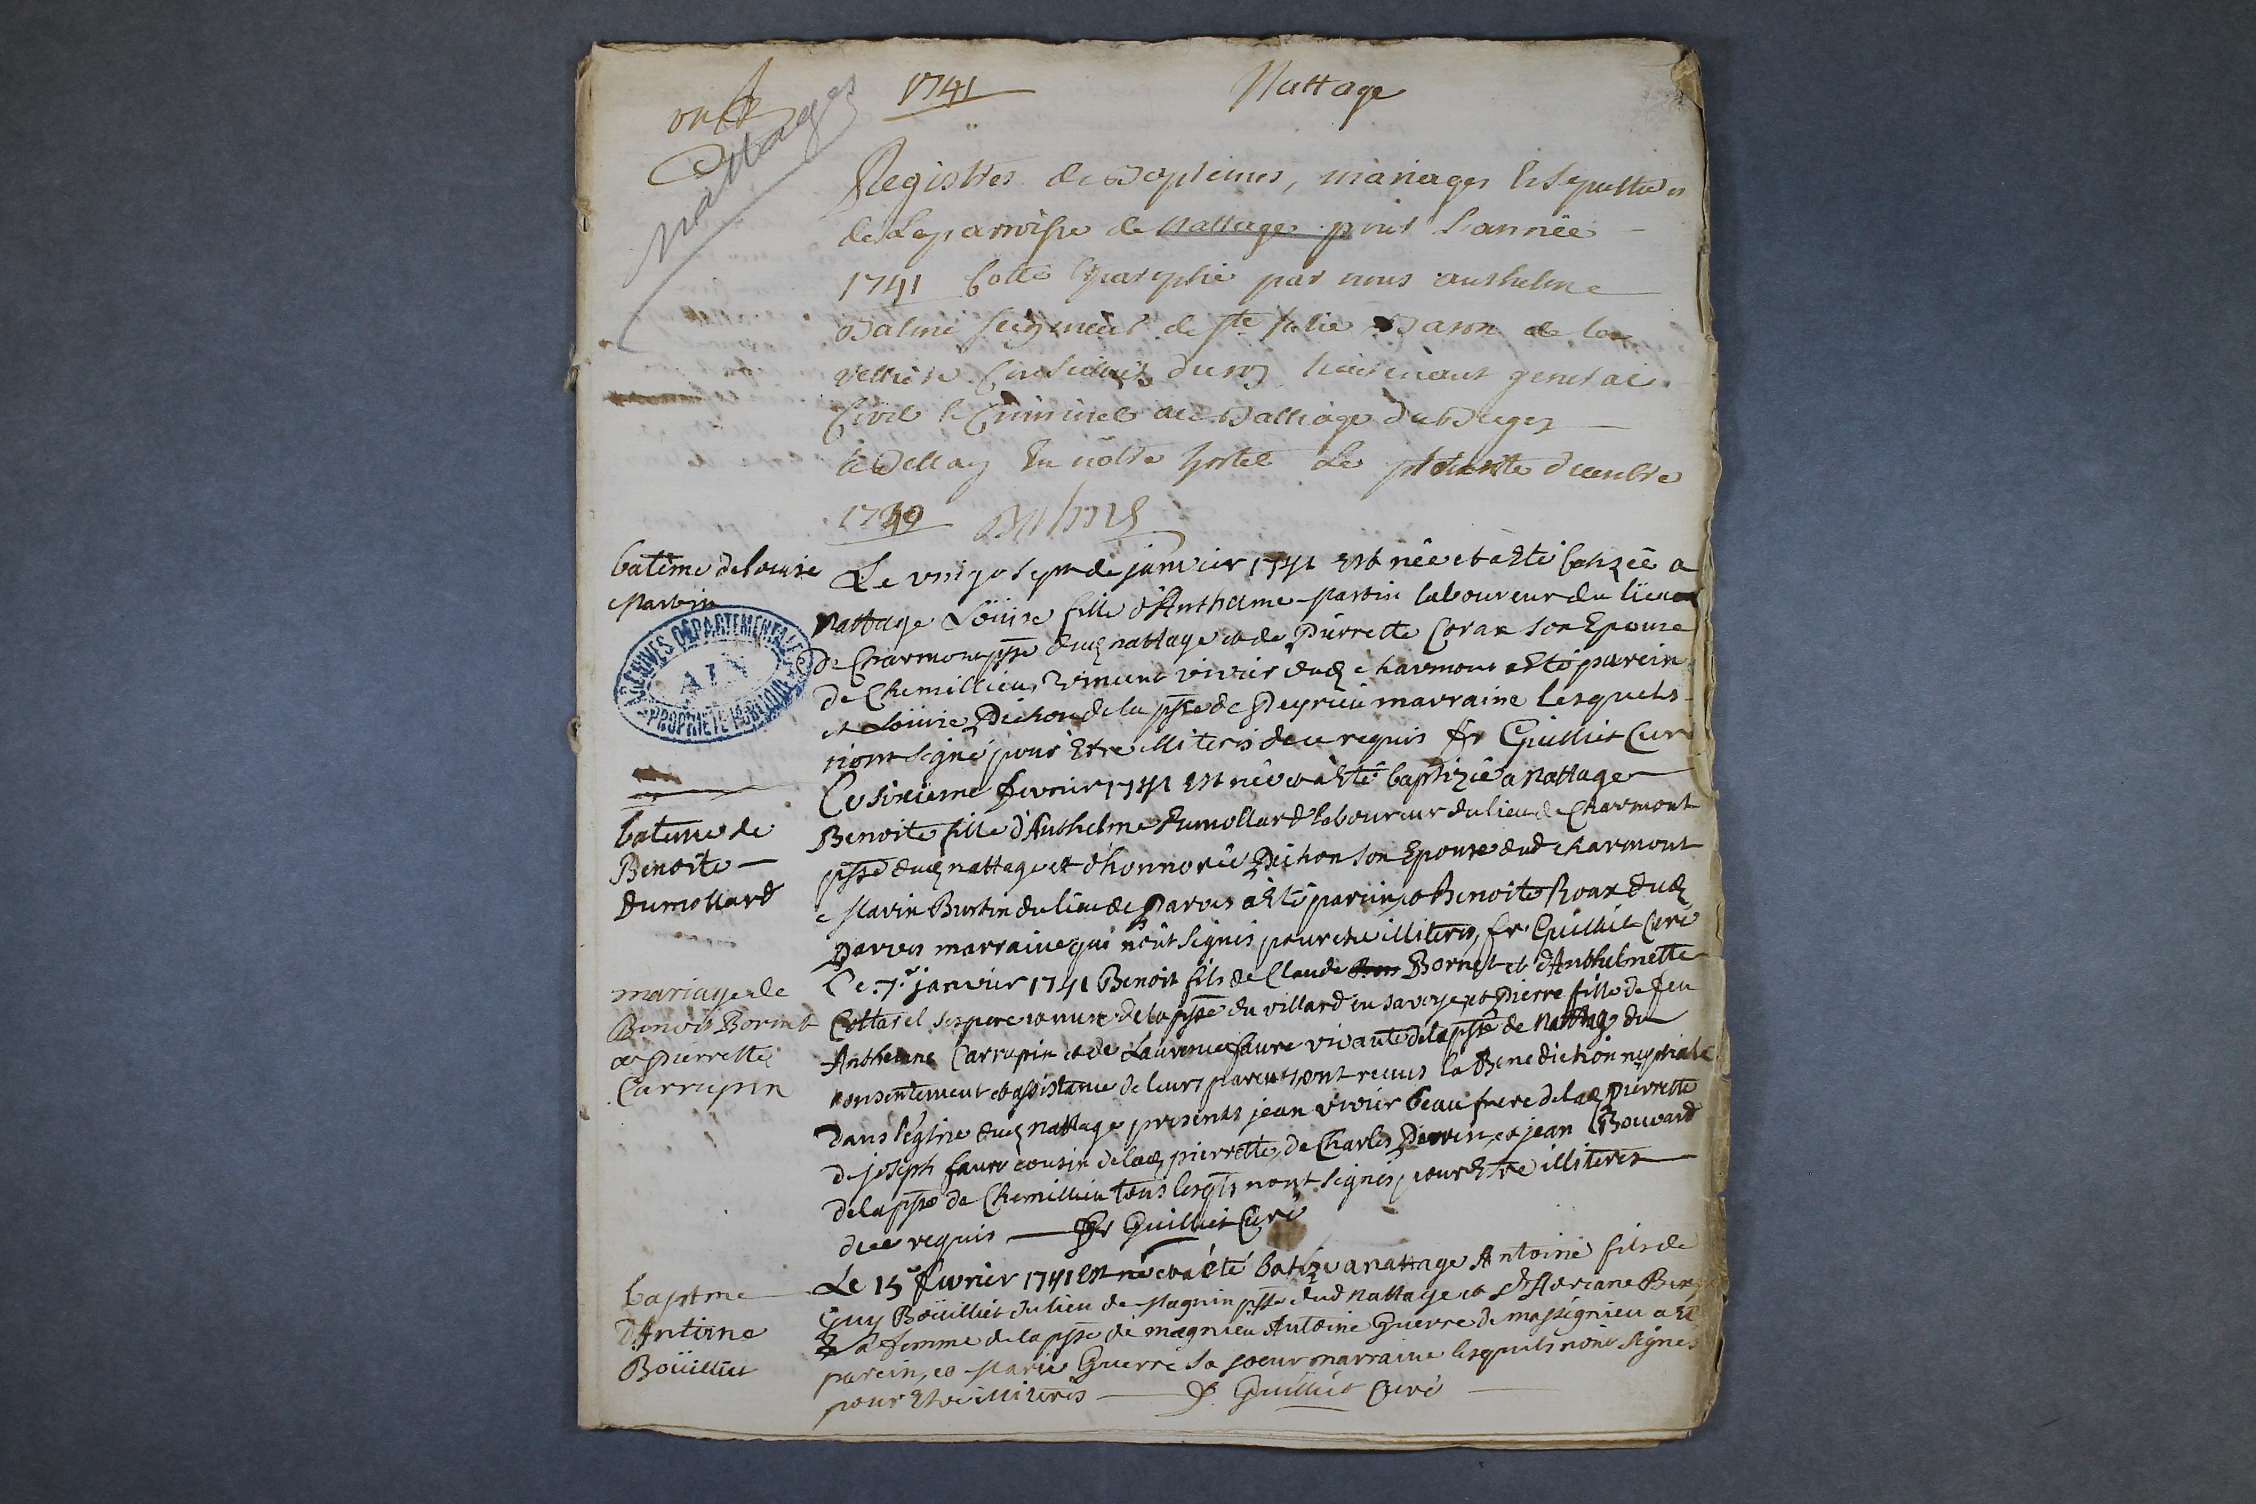 1741
Nattage
Nattages
Registres de Baptemes, mariages & sepultures
de La parroisse de Nattages pour L'année
1741 Cotté & paraphé par nous anthelme
Balme seigneur de Ste Julie Baron de
Conseiller du roy lieutenant general
Civil & Criminel au Balliage du Bugey
à Bellay En nôtre hostel Le trente decembre
1740 Balme
batême de louise
Martin
Le vingt sept de janvier 1741 Est née et a Eté batizée a
nattage Loüise fille d'Anthelme Martin laboureur du lieu
de Charmont psse dud nattage et de Pierrette Corax son Epouse
de Chemillieu, Vincent vivier dud charmont a Eté parein
et Loüise Pichon de la psse de Peyrieu marraine lesquels
n'ont signé pour Etre illiteris de ce requis fr Guilliet Curé
ARCHIVES DEPARTEMENTALES
AIN
PROPRIETE PUBLIQUE
batême de
Benoite
Dumollard
Ce sixieme fevrier 1741 Est née et a Eté baptizée a Nattage
Benoite fille d'Anthelme Dumollard laboureur du lieu de Charmont
psse dud nattage et d'honnorée Pichon son Epouse dud charmont
Marin Burtin du lieu de Parves a Eté parein, et Benoite Roux dud
Parves marraine qui n'ont signés pour etre illiteris, fr. Guilliet Curé
mariage de
Benoit Bornet
& Pierrette
Carrupin
Le 7e janvier 1741 Benoit fils de Claude Bornet et d'Anthelmette
Cottarel ses pere et mere de la psse du villard en savoye, et Pierre fille de feu
Anthelme Carrupin et de Laurence faure vivante de la psse de Nattage du
consentement et assistance de leurs parents ont recus la Benediction nuptiale
dans l'eglise dud Nattage presents jean vivier beau frere de lad Pierrette
de joseph faure cousin de lad pierrette, de Charles Perrin, et jean Bouvard
de la psse de Chemillieu tous lesqls n'ont signés pour Etre illiteres
de ce requis fr Guilliet Curé
baptme
d'Antoine
Boüilliet
Le 15e fevrier 1741 Est né et a été batizé a nattage Antoine fils de
Guy Boüilliet du lieu de Magnin psse dud Nattage et
sa femme de la psse de magnieu Antoine Guerre de massignieu a Eté
parein, et Marie Guerre sa soeur marraine lesquels n'ont signés
pour Etre illiteris f. Guilliet Curé